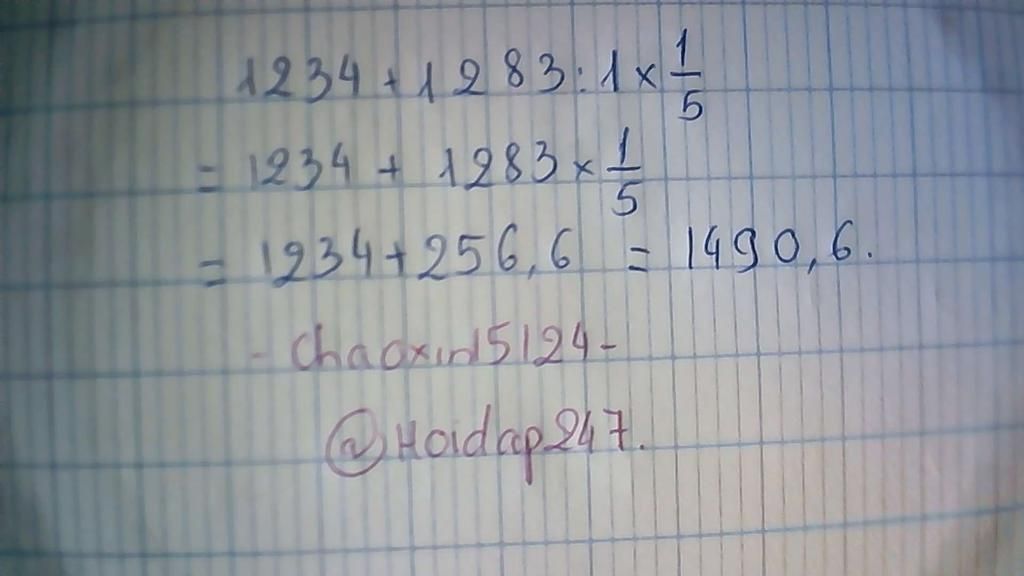 1234 + 1283 : 1 × 1/5
= 1234 + 1283 × 1/5
= 1234 + 256,6 = 1490,6.
- Chaoxin15124 -
@Hoidap247.